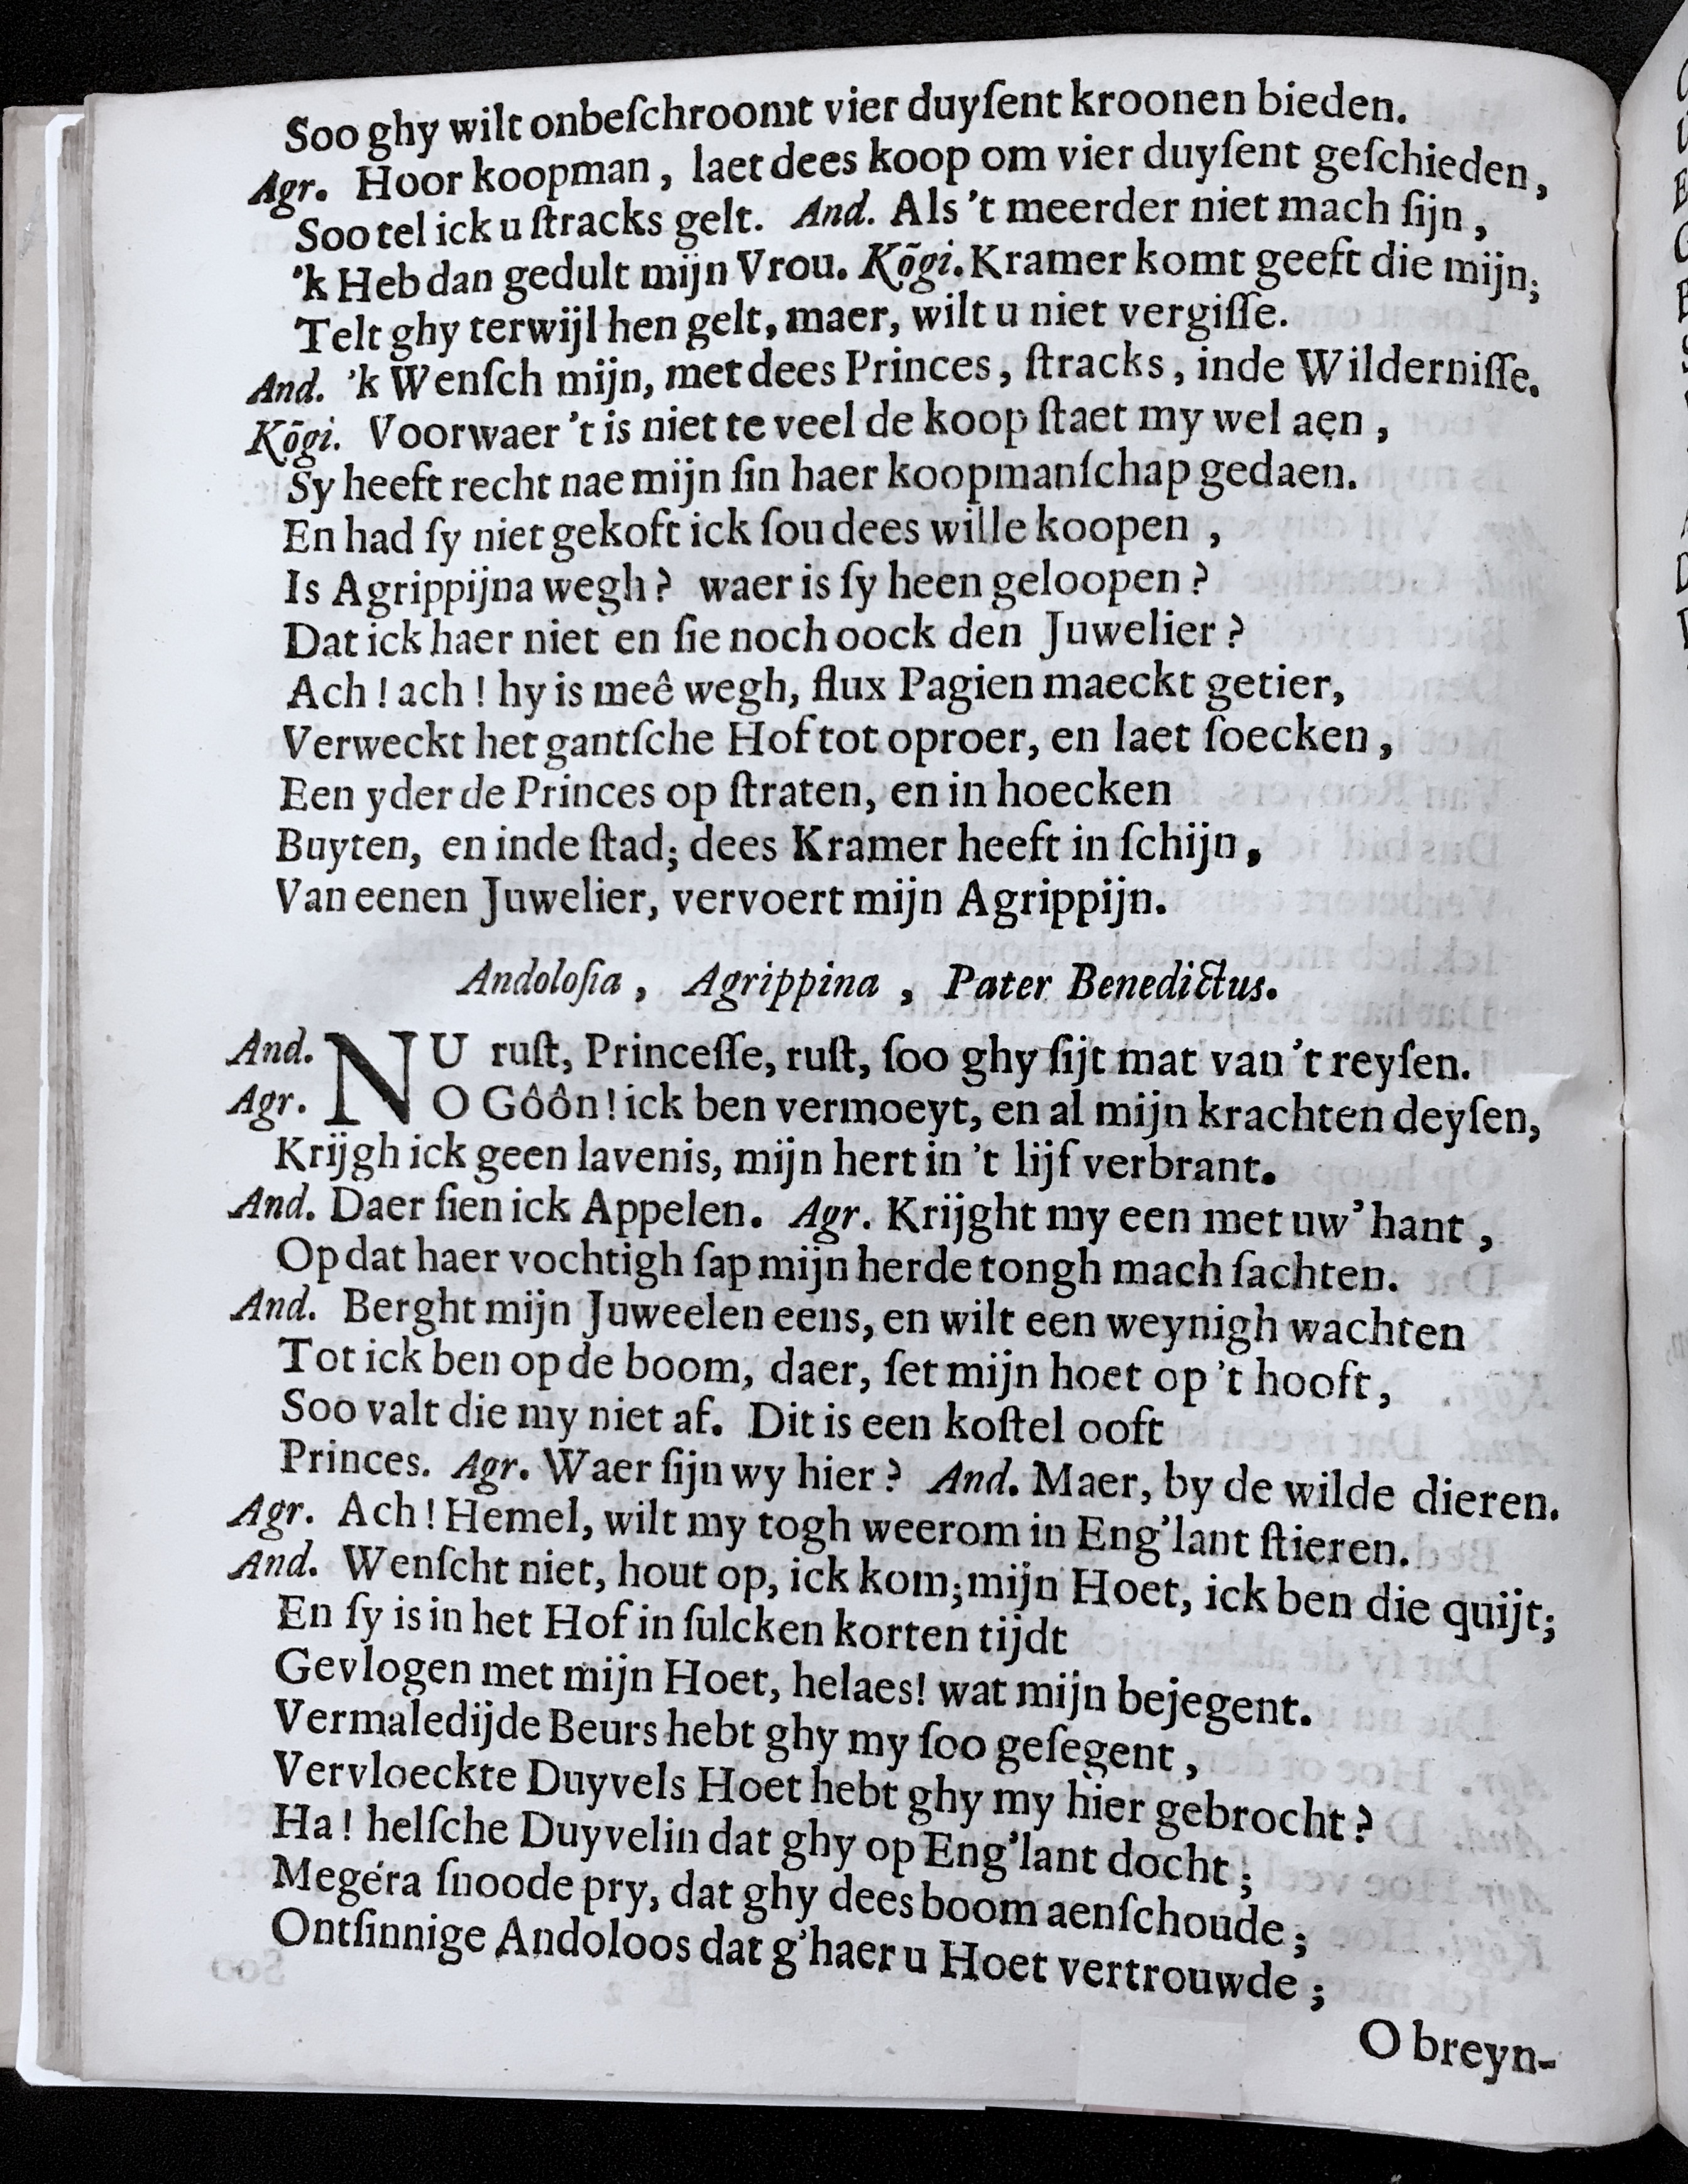 Soo ghy wilt onbeſchroomt vier duyſent kroonen bieden.
Agr. Hoor koopman, laet dees koop om vier duyſent geſchieden,
Soo tel ick u ſtracks gelt. And. Als 't meerder niet mach ſijn,
'k Heb dan gedult mijn Vrou. Kõgi. Kramer komt geeft die mijn;
Telt ghy terwijl hen gelt, maer, wilt u niet vergiſſe.
And. 'k Wenſch mijn, met dees Princes, ſtracks, inde Wilderniſſe.
Kõgi. Voorwaer 't is niet te veel de koop ſtaet my wel aen,
Sy heeft recht nae mijn ſin haer koopmanſchap gedaen.
En had ſy niet gekoft ick ſou dees wille koopen,
Is Agrippijna wegh? waer is ſy heen geloopen?
Dat ick haer niet en ſie noch oock den Juwelier?
Ach! ach! hy is meê wegh, flux Pagien maeckt getier,
Verweckt het gantſche Hof tot oproer, en laet ſoecken,
Een yder de Princes op ſtraten, en in hoecken
Buyten, en inde ſtad; dees Kramer heeft in ſchijn,
Van eenen Juwelier, vervoert mijn Agrippijn.
Andoloſia, Agrippina, Pater Benedictus.
And. NU ruſt, Princeſſe, ruſt, ſoo ghy ſijt mat van 't reyſen.
Agr. O Gôôn! ick ben vermoeyt, en al mijn krachten deyſen,
Krijgh ick geen lavenis, mijn hert in 't lijf verbrant.
And. Daer ſien ick Appelen. Agr. Krijght my een met uw' hant,
Op dat haer vochtigh ſap mijn herde tongh mach ſachten.
And. Berght mijn Juweelen eens, en wilt een weynigh wachten
Tot ick ben op de boom, daer, ſet mijn hoet op 't hooft,
Soo valt die my niet af. Dit is een koſtel ooft
Princes. Agr. Waer ſijn wy hier? And. Maer, by de wilde dieren.
Agr. Ach! Hemel, wilt my togh weerom in Eng'lant ſtieren.
And. Wenſcht niet, hout op, ick kom; mijn Hoet, ick ben die quijt;
En ſy is in het Hof in ſulcken korten tijdt
Gevlogen met mijn Hoet, helaes! wat mijn bejegent.
Vermaledijde Beurs hebt ghy my ſoo geſegent,
Vervloeckte Duyvels Hoet hebt ghy my hier gebrocht?
Ha! helſche Duyvelin dat ghy op Eng'lant docht;
Megéra ſnoode pry, dat ghy dees boom aenſchoude;
Ontſinnige Andoloos dat g'haer u Hoet vertrouwde;
O breyn-